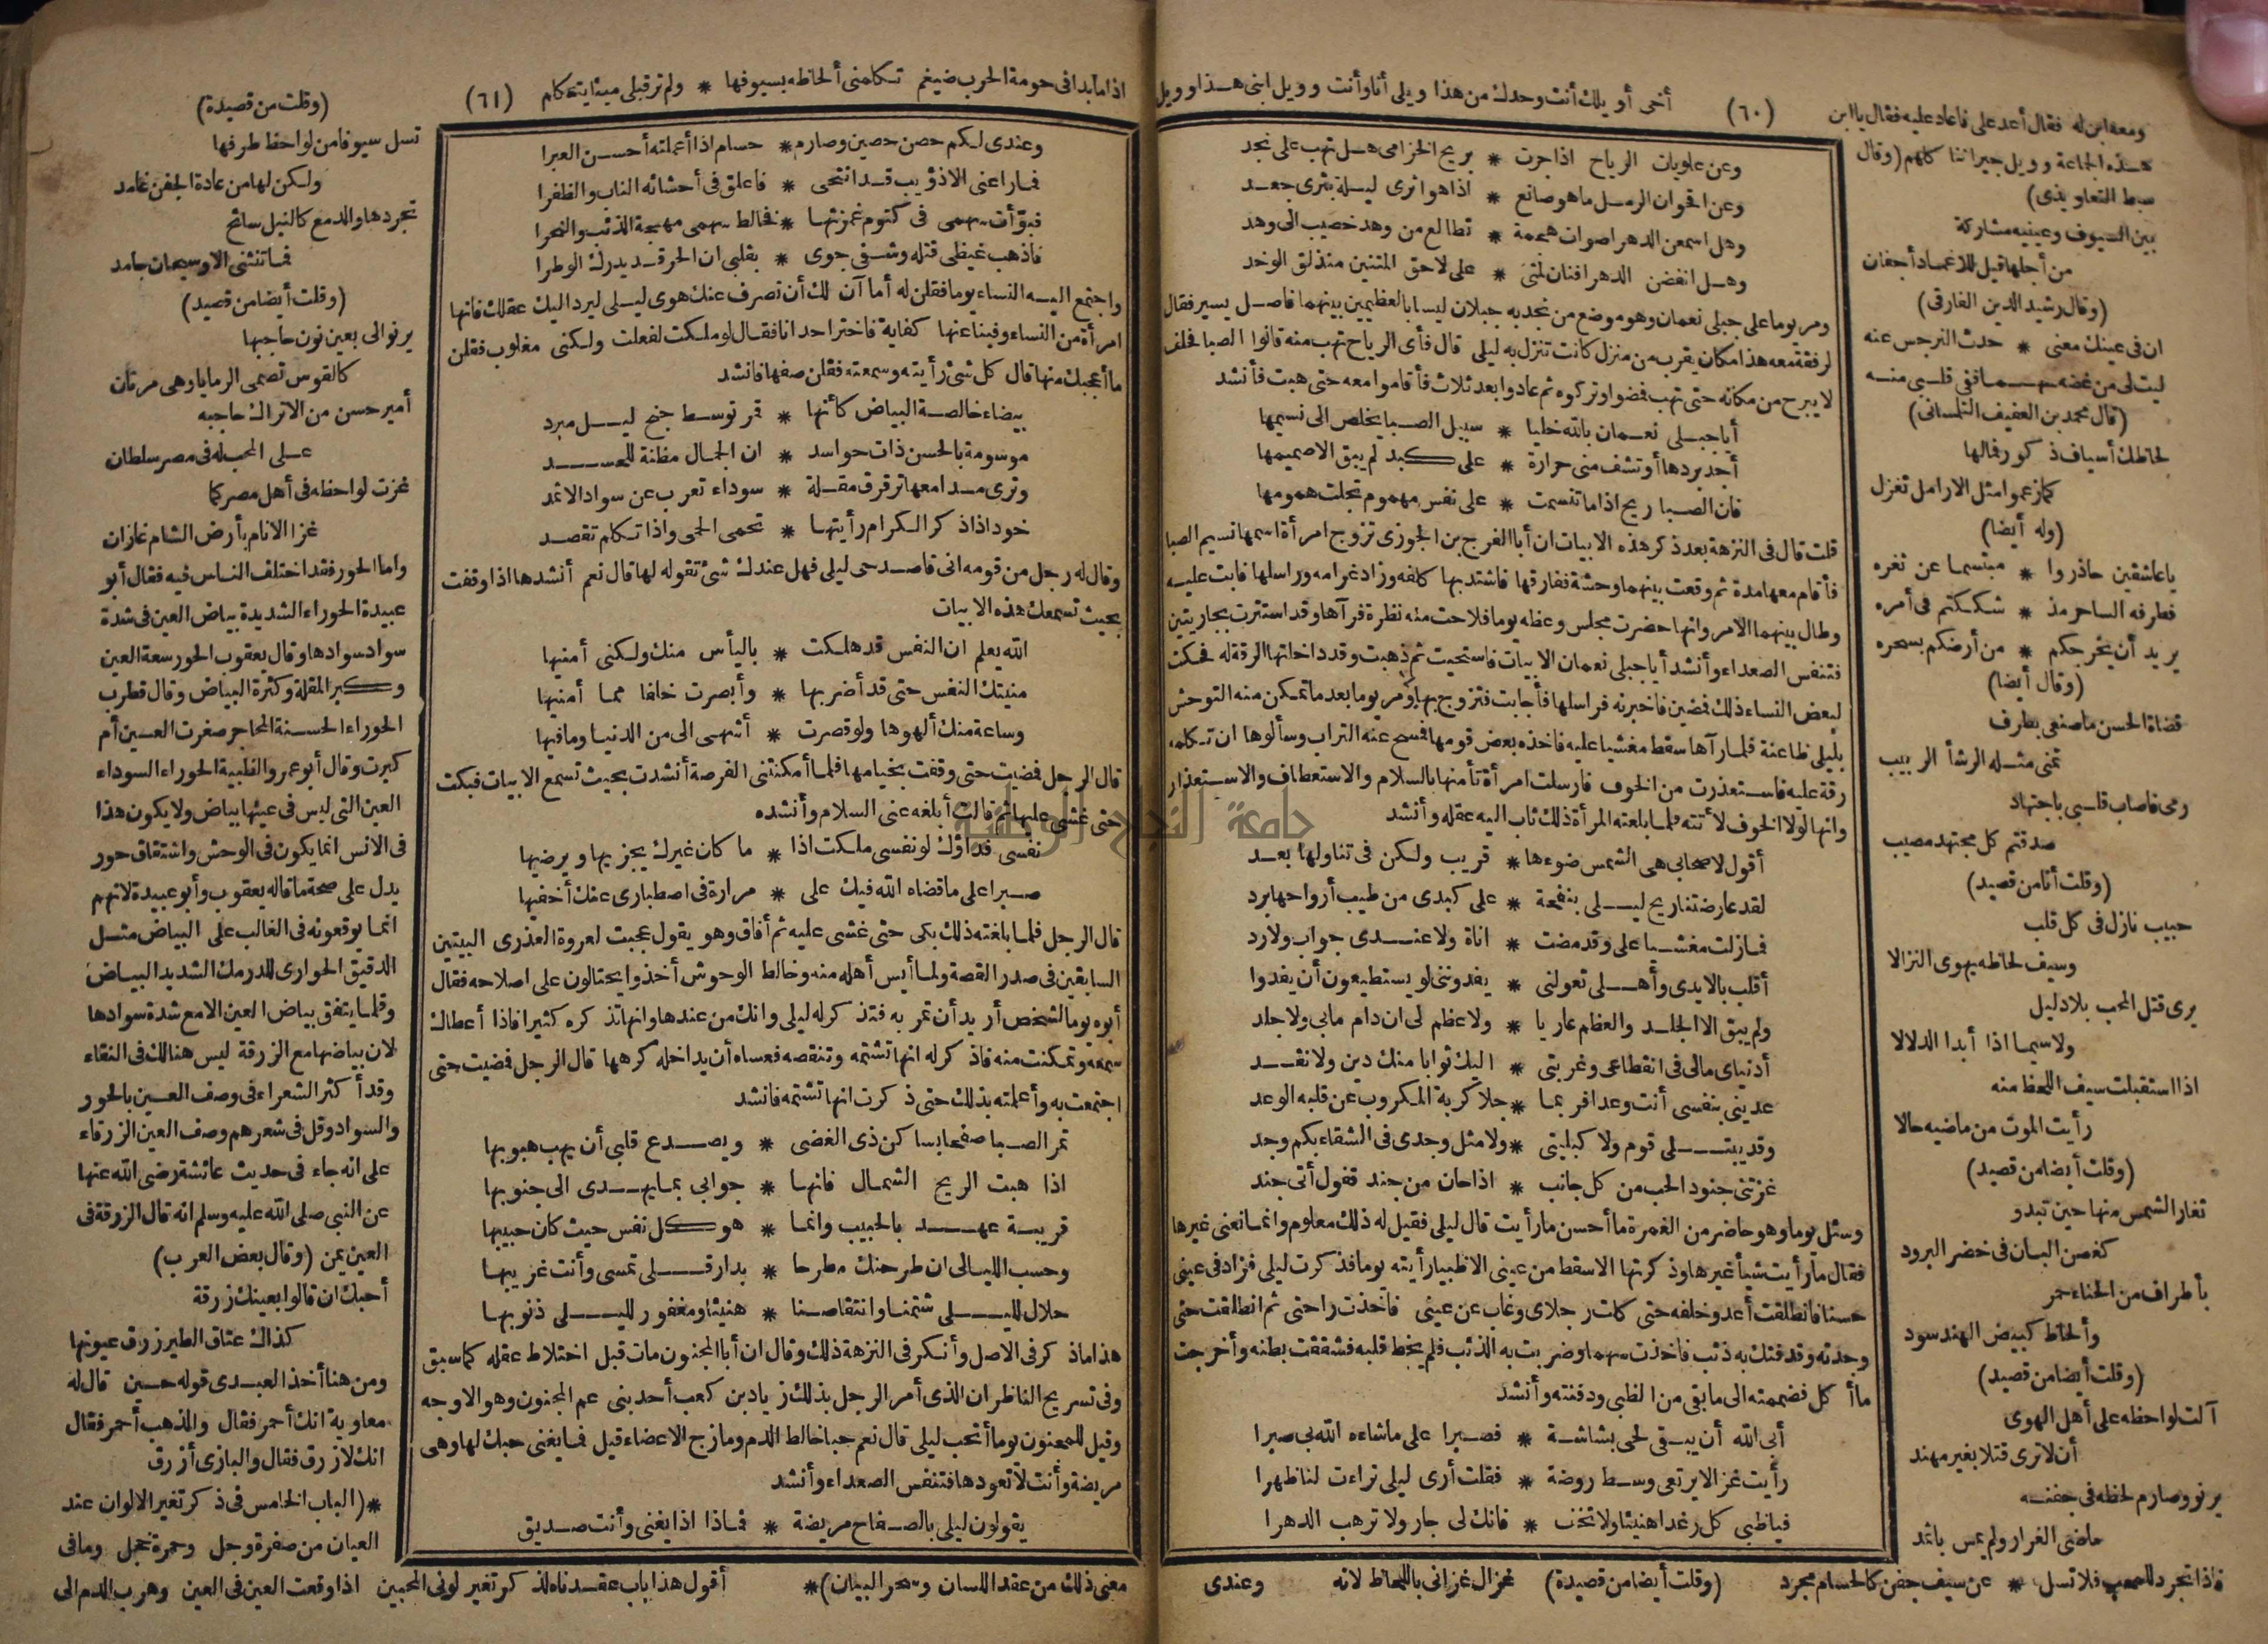 (٦٠)
ومعه ابن له فقال أعد على فاعاد عليه فقال يا ابن
أخى أو يلك أنت وحدك من هذا ويلى أنا وأنت وويل ابنى هذا وويل
هذه الجماعة وويل جيراننا كلهم (وقال
سبط التعاويذى)
بين السيوف وعينيه مشاركة
من أجلها قيل للاغماد أجفان
(وقال رشيد الدين الفارقى)
ان فى عينك معنى * حدث النرجس عنه
ليت لى من غضه سهما ففى قلبى منه
(قال محمد بن العفيف التلمسانى)
لحاظك أسياف ذكور فمالها
كما زعموا مثل الارامل تغزل
(وله أيضا)
يا عاشقين حاذروا * مبتسما عن ثغره
فطرفه الساحر مذ * شككتم فى أمره
يريد أن يخرجكم * من أرضكم بسحره
(وقال أيضا)
قضاة الحسن ما صنعى بطرف
تمنى مثله الرشأ الربيب
رمى فاصاب قلبى باجتهاد
صدقتم كل مجتهد مصيب
(وقلت أنا من قصيد)
حبيب نازل فى كل قلب
وسيف لحاظه يهوى النزالا
يرى قتل المحب بلا دليل
ولا سيما اذا أبدا الدلالا
اذا استقبلت سيف اللحظ منه
رأيت الموت من ماضيه حالا
(وقلت أيضا من قصيد)
تغار الشمس منها حين تبدو
كغصن البان فى خضر البرود
بأطراف من الحناء حمر
وألحاظ كبيض الهند سود
(وقلت أيضا من قصيد)
آلت لواحظه على أهل الهوى
أن لا ترى قتلا بغير مهند
يرنو وصارم لحظه فى جفنه
ماضى الغرار ولم يمس باثمد
فاذا تجرد للمحب فلا تسل * عن سيف جفن كالحسام مجرد
(وقلت أيضا من قصيدة) غزال غزانى باللحاظ لانه
وعن علويات الرياح اذا جرت * بريح الخزامى هل تهب على نجد
وعن اقحوان الرمل ما هو صانع * اذا هو اثرى ليلة بثرى جعد
وهل اسمعن الدهر اصوات هجمة * تطالع من وهد خصيب الى وهد
وهل انفضن الدهر افنان لمتى * على لاحق المتنين منذلق الوخد
ومر يوما على جبلى نعمان وهو موضع من نجد به جبلان ليسا بالعظيمين بينهما فاصل يسير فقال
لرفقة معه هذا مكان يقرب من منزل كانت تنزل به ليلى قال فأى الرياح تهب منه قالوا الصبا فحلف
لا يبرح من مكانه حتى تهب فمضوا وتركوه ثم عادوا بعد ثلاث فأقاموا معه حتى هبت فأنشد
أيا جبلى نعمان بالله خليا * سبيل الصبا يخلص الى نسيمها
أجد بردها أو تشف منى حرارة * على كبد لم يبق الا صميمها
فان الصبا ريح اذا ما تنسمت * على نفس مهموم تجلت همومها
قلت قال فى النزهة بعد ذكر هذه الابيات ان أبا الفرج بن الجوزى تزوج امرأة اسمها نسيم الصبا
فأقام معها مدة ثم وقعت بينهما وحشة ففارقها فاشتد بها كلفه وزاد غرامه وراسلها فابت عليه
وطال بينهما الامر وانها حضرت مجلس وعظه يوما فلاحت منه نظرة فرآها وقد استترت بجاريتين
فتنفس الصعداء وأنشد أيا جبلى نعمان الابيات فاستحيت ثم ذهبت وقد داخلتها الرقة له فحكت
لبعض النساء ذلك فمضين فاخبرنه فراسلها فأجابت فتزوج بها ومر يوما بعد ما تمكن منه التوحش
بليلى ظاعنة فلما رآها سقط مغشيا عليه فاخذه بعض قومها فمسح عنه التراب وسألوها ان تكلمه
رقة عليه فاستعذرت من الخوف فارسلت امرأة تأمنها بالسلام والاستعطاف والاستعذار
وانها لولا الخوف لأتته فلما بلغته المرأة ذلك ثاب اليه عقله وأنشد
أقول لاصحابى هى الشمس ضوءها * قريب ولكن فى تناولها بعد
لقد عارضتنا ريح ليلى بنفحة * على كبدى من طيب أرواحها برد
فما زلت مغشيا على وقد مضت * اناة ولا عندى جواب ولا رد
أقلب بالايدى وأهلى تعولنى * يفدوننى لو يستطيعون أن يفدوا
ولم يبق الا الجلد والعظم عاريا * ولا عظم لى ان دام مابى ولا جلد
أدنياى مالى فى انقطاعى وغربتى * اليك ثوابا منك دين ولا نقد
عدينى بنفسى أنت وعدا فربما * جلا كربة المكروب عن قلبه الوعد
وقد يبتلى قوم ولا كبليتى * ولا مثل وجدى فى الشقاء بكم وجد
غزتنى جنود الحب من كل جانب * اذا حان من جند قفول أتى جند
وسئل يوما وهو حاضر من الغمرة ما أحسن ما رأيت قال ليلى فقيل له ذلك معلوم وانما نعنى غيرها
فقال ما رأيت شيأ غيرها وذكرتها الا سقط من عينى الا ظبيا رأيته يوما فذكرت ليلى فزاد فى عينى
حسنا فانطلقت أعدو خلفه حتى كلت رجلاى وغاب عن عينى فأخذت راحتى ثم انطلقت حتى
وجدته وقد فتك به ذئب فاخذت سهما وضربت به الذئب فلم يخط قلبه فشققت بطنه وأخرجت
ما أكل فضممته الى ما بقى من الظبى ودفنته وأنشد
أبى الله أن يبقى لحى بشاشة * فصبرا على ما شاءه الله بى صبرا
رأيت غزالا يرتعى وسط روضة * فقلت أرى ليلى تراءت لنا ظهرا
فيا ظبى كل رغدا هنيئا ولا تخف * فانك لى جار ولا ترهب الدهرا
وعندى
(٦١)
اذا ما بدا فى حومة الحرب ضيغم تكلمنى ألحاظه بسيوفها * ولم تر قبلى ميتا يتكلم
وعندى لكم حصن حصين وصارم * حسام اذا أعملته أحسن العبرا
فما راعنى الا ذؤيب قد انتحى * فاعلق فى أحشائه الناب والظفرا
فبوّأت سهمى فى كتوم غمزتها * فخالط سهمى مهجة الذئب والنحرا
فاذهب غيظى قتله وشفى جوى * بقلبى ان الحر قد يدرك الوطرا
واجتمع اليه النساء يوما فقلن له أما آن لك أن تصرف عنك هوى ليلى ليرد اليك عقلك فانها
امرأة من النساء وفينا عنها كفاية فاختر احدانا فقال لو ملكت لفعلت ولكنى مغلوب فقلن
ما أعجبك منها قال كل شئ رأيته وسمعته فقلن صفها فانشد
بيضاء خالصة البياض كأنها * قمر توسط جنح ليل مبرد
موسومة بالحسن ذات حواسد * ان الجمال مظنة للحسد
وترى مدامعها ترقرق مقلة * سوداء تعرب عن سواد الاثمد
خود اذا ذكر الكرام رأيتها * تحمى الحمى واذا تكلم تقصد
وقال له رجل من قومه انى قاصد حى ليلى فهل عندك شئ تقوله لها قال نعم أنشدها اذا وقفت
بحيث تسمعك هذه الابيات
الله يعلم ان النفس قد هلكت * باليأس منك ولكنى أمنيها
منيتك النفس حتى قد أضر بها * وأبصرت خلفا مما أمنيها
وساعة منك ألهوها ولو قصرت * أشهى الى من الدنيا وما فيها
قال الرجل فمضيت حتى وقفت بخيامها فلما أمكنتنى الفرصة أنشدت بحيث تسمع الابيات فبكت
حتى غشى عليها ثم قالت أبلغه عنى السلام وأنشده
نفسى فداؤك لو نفسى ملكت اذا * ما كان غيرك يجزيها ويرضيها
صبرا على ما قضاه الله فيك على * مرارة فى اصطبارى عنك أخفيها
قال الرجل فلما بلغته ذلك بكى حتى غشى عليه ثم أفاق وهو يقول عجبت لعروة العذرى البيتين
السابقين فى صدر القصة ولما أيس أهله منه وخالط الوحوش أخذوا يحتالون على اصلاحه فقال
أبوه يوما لشخص أريد أن تمر به فتذكر له ليلى وانك من عندها وانها تذكره كثيرا فاذا أعطاك
سمعه وتمكنت منه فاذكر له انها تشتمه وتنقصه فعساه أن يداخله كرهها قال الرجل فمضيت حتى
اجتمعت به وأعلمته بذلك حتى ذكرت انها تشتمه فانشد
تمر الصبا صفحا بساكن ذى الغضى * ويصدع قلبى أن يهب هبوبها
اذا هبت الريح الشمال فانها * جوابى بما يهدى الى جنوبها
قريبة عهد بالحبيب وانما * هو كل نفس حيث كان حبيبها
وحسب الليالى ان طرحنك مطرحا * بدار قلى تمسى وأنت غريبها
حلال لليلى شتمنا وانتقاصنا * هنيئا ومغفور لليلى ذنوبها
هذا ما ذكر فى الاصل وأنكر فى النزهة ذلك وقال ان أبا المجنون مات قبل اختلاط عقله كما سبق
وفى تسريح الناظر ان الذى أمر الرجل بذلك زياد بن كعب أحد بنى عم المجنون وهو الاوجه
وقيل للمجنون يوما أتحب ليلى قال نعم حبا خالط الدم ومازج الاعضاء قيل فما يغنى حبك لها وهى
مريضة وأنت لا تعودها فتنفس الصعداء وأنشد
يقولون ليلى بالصفاح مريضة * فماذا اذا يغنى وأنت صديق
(وقلت من قصيدة)
تسل سيوفا من لواحظ طرفها
ولكن لها من عادة الجفن غامد
تجردها والدمع كالنيل سائح
فما تنثنى الا وسيحان جامد
(وقلت أيضا من قصيد)
يرنو الى بعين نون حاجبها
كالقوس تصمى الرمايا وهى مرنان
أمير حسن من الاتراك حاجبه
على المحبة فى مصر سلطان
غزت لواحظه فى أهل مصر كما
غزا الانام بأرض الشام غازان
واما الحور فقد اختلف الناس فيه فقال أبو
عبيدة الحوراء الشديدة بياض العين فى شدة
سواد سوادها وقال يعقوب الحور سعة العين
وكبر المقلة وكثرة البياض وقال قطرب
الحوراء الحسنة المحاجر صغرت العين أم
كبرت وقال أبو عمرو الظبية الحوراء السوداء
العين التى ليس فى عينها بياض ولا يكون هذا
فى الانس انما يكون فى الوحش واشتقاق حور
يدل على صحة ما قاله يعقوب وأبو عبيدة لانهم
انما يوقعونه فى الغالب على البياض مثل
الدقيق الحوارى للدرمك الشديد البياض
وقلما يتفق بياض العين الا مع شدة سوادها
لان بياضها مع الزرقة ليس هنالك فى النقاء
وقد أكثر الشعراء فى وصف العين بالحور
والسواد وقل فى شعرهم وصف العين الزرقاء
على انه جاء فى حديث عائشة رضى الله عنها
عن النبى صلى الله عليه وسلم انه قال الزرقة فى
العين يمن (وقال بعض العرب)
أحبك ان قالوا بعينك زرقة
كذاك عتاق الطير زرق عيونها
ومن هنا أخذ العبدى قوله حين قال له
معاوية انك أحمر فقال والذهب أحمر فقال
انك لازرق فقال والبازى أزرق
*(الباب الخامس فى ذكر تغير الالوان عند
العيان من صفرة وجل وحمرة خجل وما فى
معنى ذلك من عقد اللسان وسحر البيان)* أقول هذا باب عقدناه لذكر تغير لونى المحبين اذا وقعت العين فى العين وهرب الدم الى
جامعة النجاح الوطنية